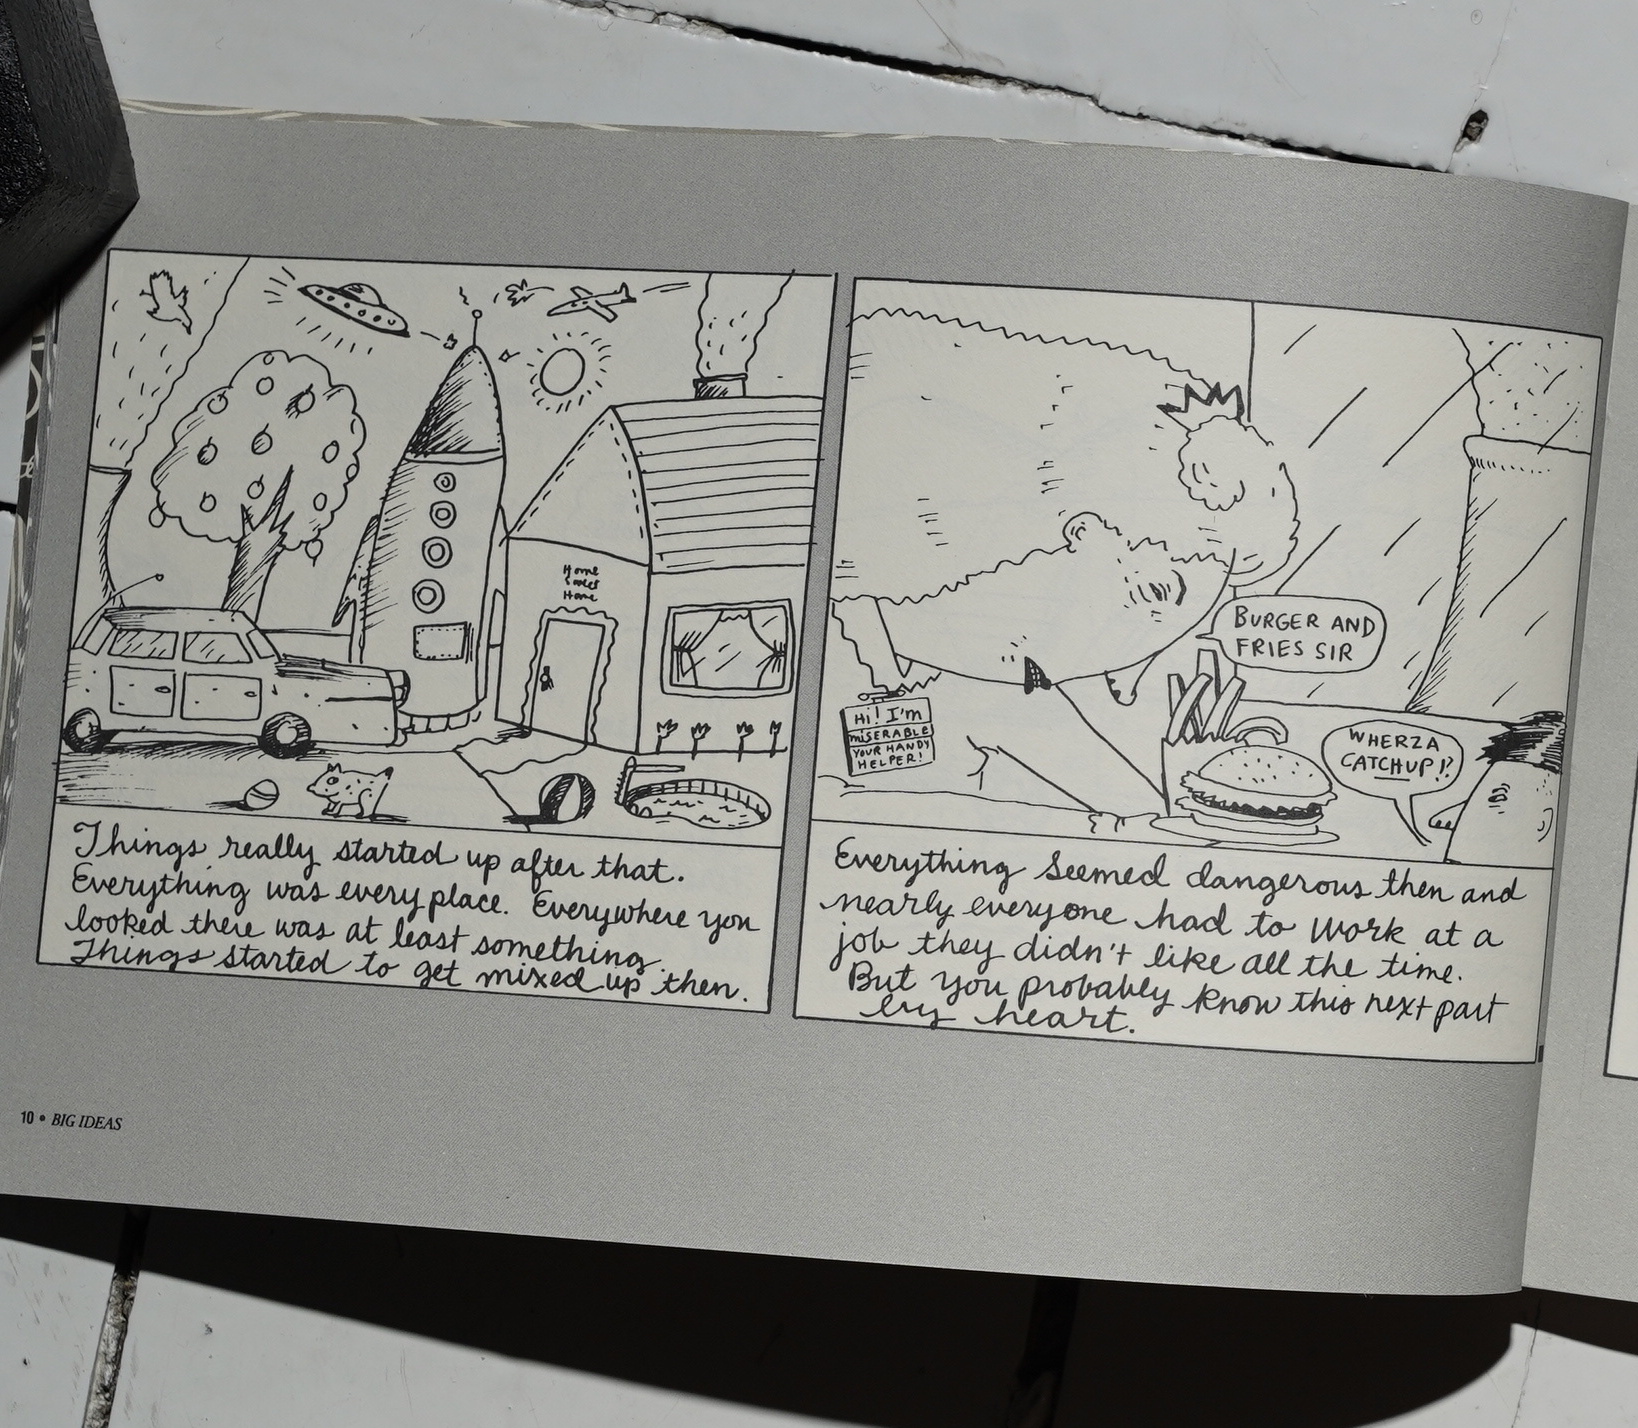 Home
Sweet
Home
Things really started up after that.
Everything was every place. Everywhere you
looked there was at least something.
Things started to get mixed up then.
BURGER AND
FRIES SIR
Hi! I'm
MISERABLE
YOUR HANDY
HELPER!
WHERZA
CATCHUP!?
Everything seemed dangerous then and
nearly everyone had to work at a
job they didn't like all the time.
But you probably know this next part
by heart.
10 • BIG IDEAS